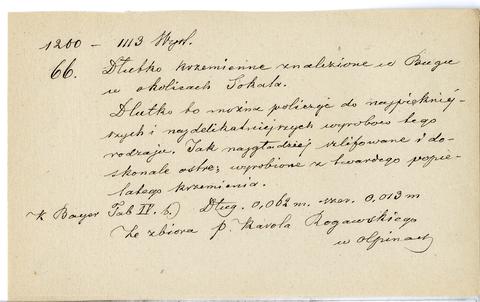 1200 - 1113 Wyst.
66. Dłutko krzemienne znalezione w Bugu
w okolicach Sokala.
Dłutko to można policzyć do najpiękniej-
szych i najdelikatniejszych wyrobów tego
rodzaju. Jak najgładziej szlifowane i do-
skonale ostre; wyrobione z twardego popie-
latego krzemienia.
K Bayer Tab IV. b.) Dług. 0,062 m. szer. 0,013 m
Ze zbioru p. Karola Rogawskiego
w Olpinach